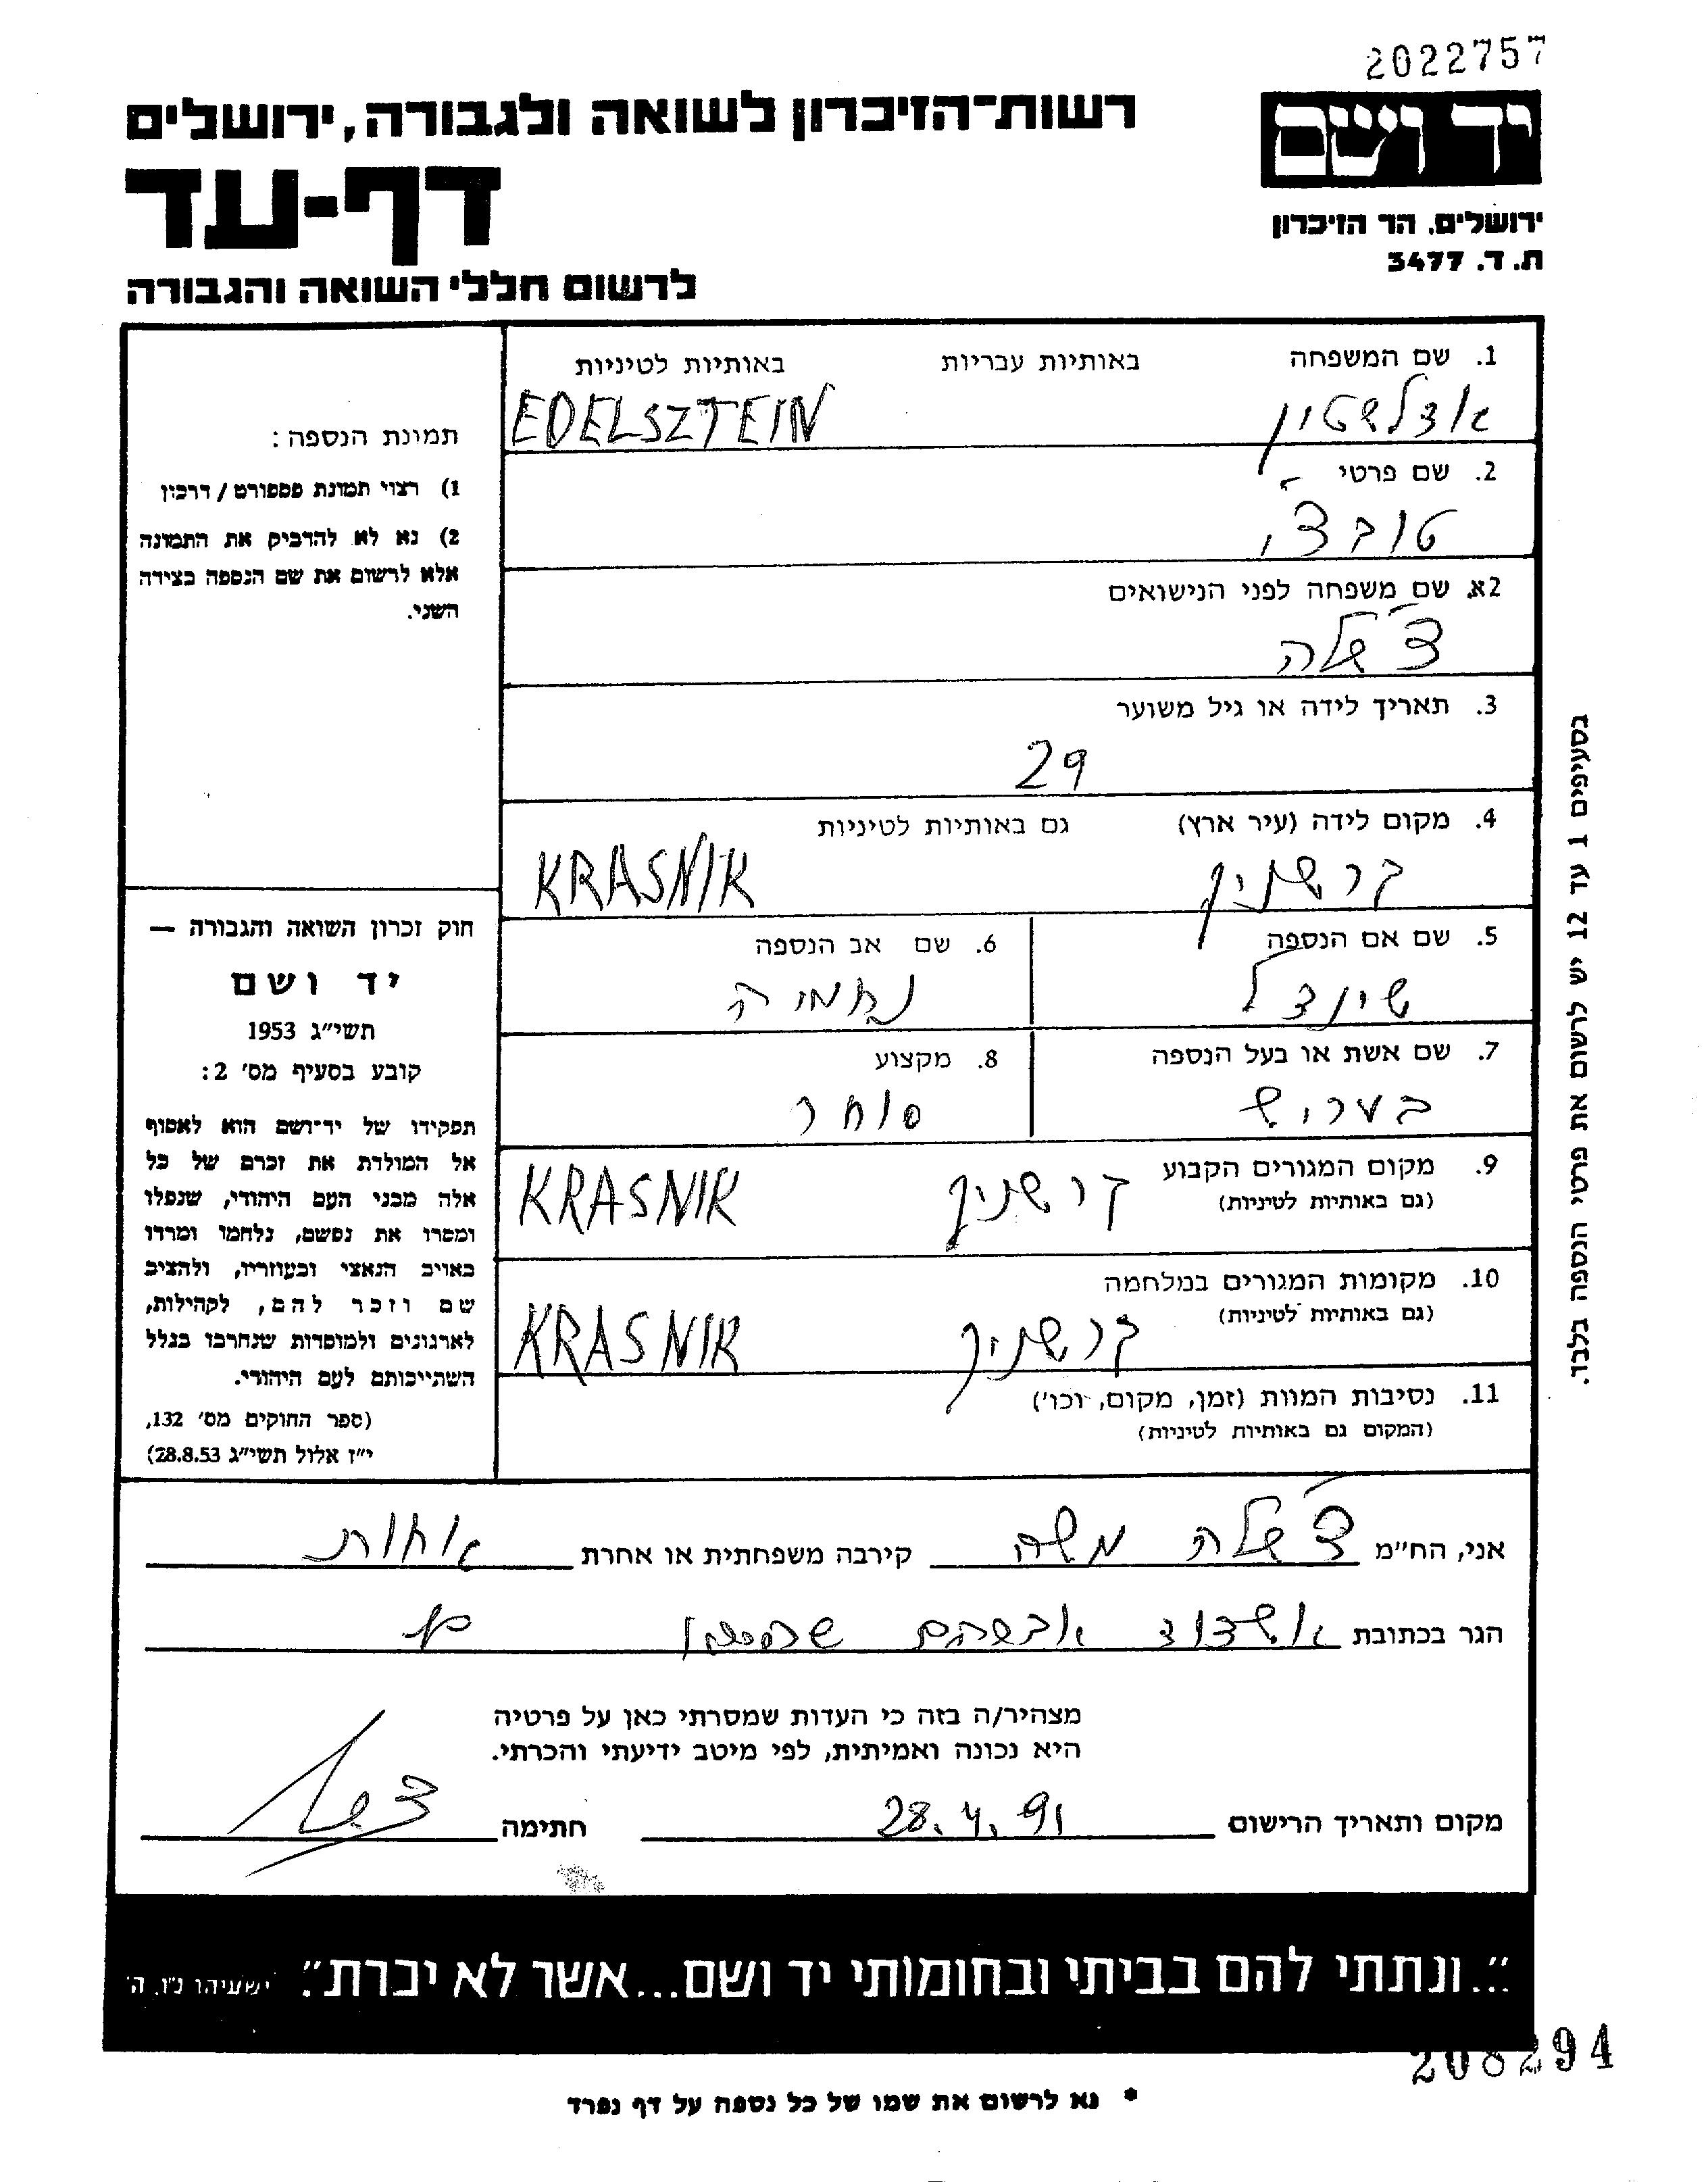 2022757
יד ושם
רשות־הזיכרון לשואה ולגבורה, ירושלים
דף-עד
ירושלים, הר הזיכרון
ת. ד. 3477
לרשום חללי השואה והגבורה
1. שם המשפחה באותיות עבריות באותיות לטיניות
אדלשטין EDELSZTEIN
2. שם פרטי
טובצ'י
2א. שם משפחה לפני הנישואים
צ'שלה
3. תאריך לידה או גיל משוער
29
4. מקום לידה (עיר ארץ) גם באותיות לטיניות
קרשניק KRASNIK
5. שם אם הנספה
שינדל
6. שם אב הנספה
נחמיה
7. שם אשת או בעל הנספה
בעריש
8. מקצוע
סוחר
9. מקום המגורים הקבוע
(גם באותיות לטיניות)
קרשניק KRASNIK
10. מקומות המגורים במלחמה
(גם באותיות לטיניות)
קרשניק KRASNIK
11. נסיבות המוות (זמן, מקום, וכו')
(המקום גם באותיות לטיניות)
תמונת הנספה:
1) רצוי תמונת פספורט / דרכון
2) נא לא להדביק את התמונה
אלא לרשום את שם הנספה בצידה
השני.
חוק זכרון השואה והגבורה —
יד ושם
תשי״ג 1953
קובע בסעיף מס׳ 2:
תפקידו של יד־ושם הוא לאסוף
אל המולדת את זכרם של כל
אלה מבני העם היהודי, שנפלו
ומסרו את נפשם, נלחמו ומרדו
באויב הנאצי ובעוזריו, ולהציב
שם וזכר להם, לקהילות,
לארגונים ולמוסדות שנחרבו בגלל
השתייכותם לעם היהודי.
(ספר החוקים מס׳ 132,
י״ז אלול תשי״ג 28.8.53)
בסעיפים 1 עד 12 יש לרשום את פרטי הנספה בלבד.
אני, הח״מ צ'שלה משה קירבה משפחתית או אחרת אחות
הגר בכתובת אשדוד אברהם
מצהיר/ה בזה כי העדות שמסרתי כאן על פרטיה
היא נכונה ואמיתית, לפי מיטב ידיעתי והכרתי.
מקום ותאריך הרישום 28.4.91 חתימה
״...ונתתי להם בביתי ובחומותי יד ושם...אשר לא יכרת״. ישעיהו נ״ו, ה׳
208294
* נא לרשום את שמו של כל נספה על דף נפרד